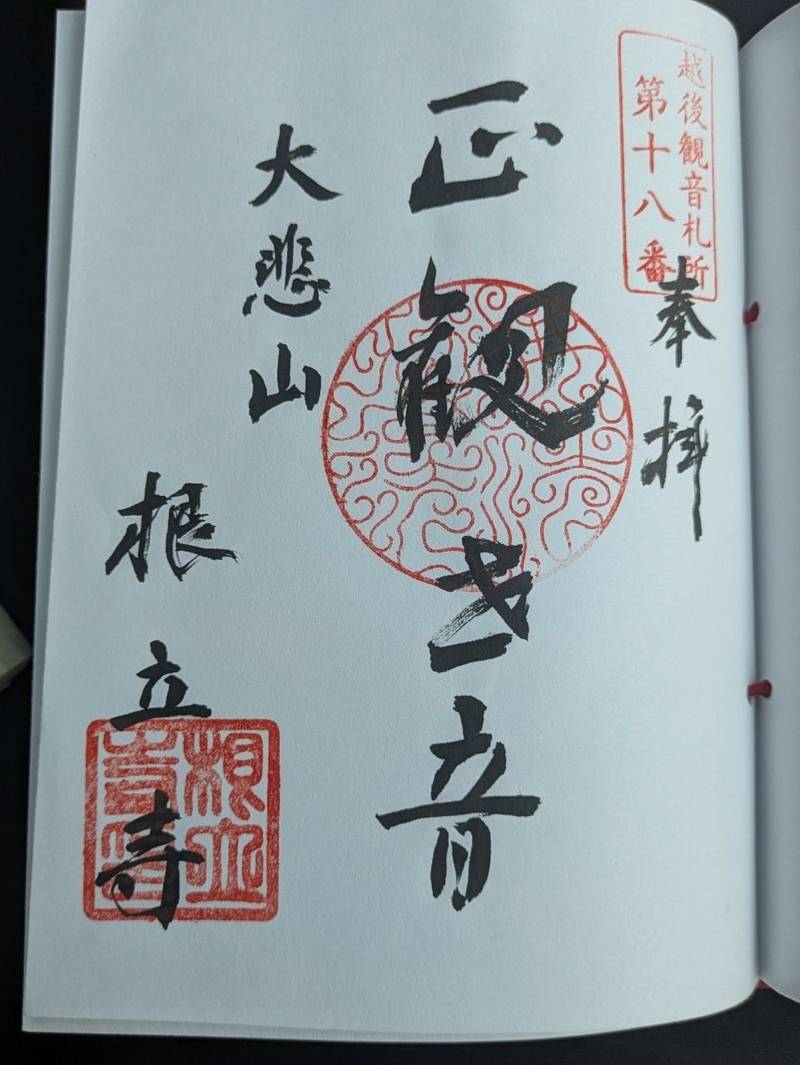 越後観音札所
第十八番
奉拝
正観世音
大悲山
根立寺